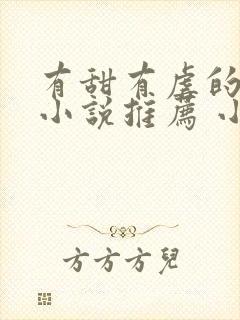 有甜有虐的
小說推薦 小
方方方兒